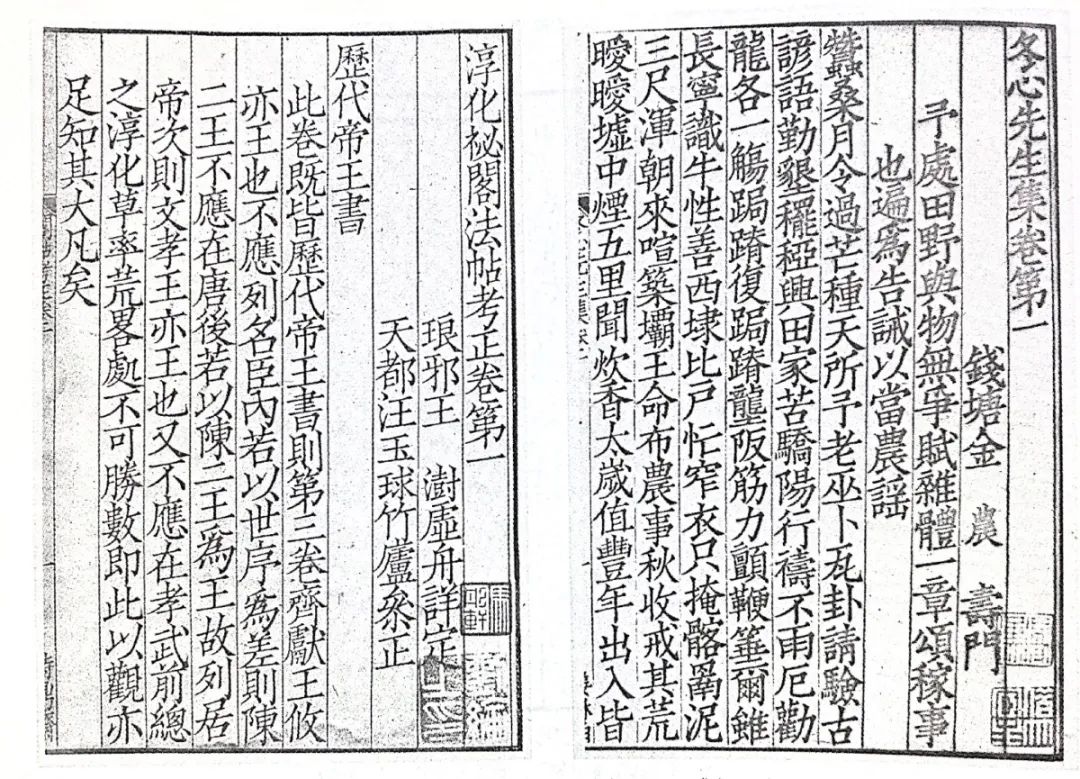 冬心先生集卷第一
錢塘金 農 壽門
予處田野與物無爭賦雜體一章頌稼事
也遍爲告誡以當農謡
蠶桑月令過芒種天所予老巫卜瓦卦請驗古
諺語勤墾䆉稏興田家苦驕陽行禱不雨厄勸
龍各一觴跼蹐復跼蹐壟阪筋力顫鞭箠爾雖
長寧識牛性善西埭比戶忙窄衣只掩髂罱泥
三尺渾朝來喧築壩王命布農事秋收戒其荒
曖曖墟中煙五里聞炊香太歲值豐年出入皆
淳化祕閣法帖考正卷第一
琅邪王 澍虛舟詳定
天都汪玉球竹廬叅正
歷代帝王書
此卷既皆歷代帝王書則第三卷齊獻王攸
亦王也不應列名臣內若以世序爲差則陳
二王不應在唐後若以陳二王爲王故列居
帝次則文孝王亦王也又不應在孝武前總
之淳化草率荒畧處不可勝數即此以觀亦
足知其大凡矣